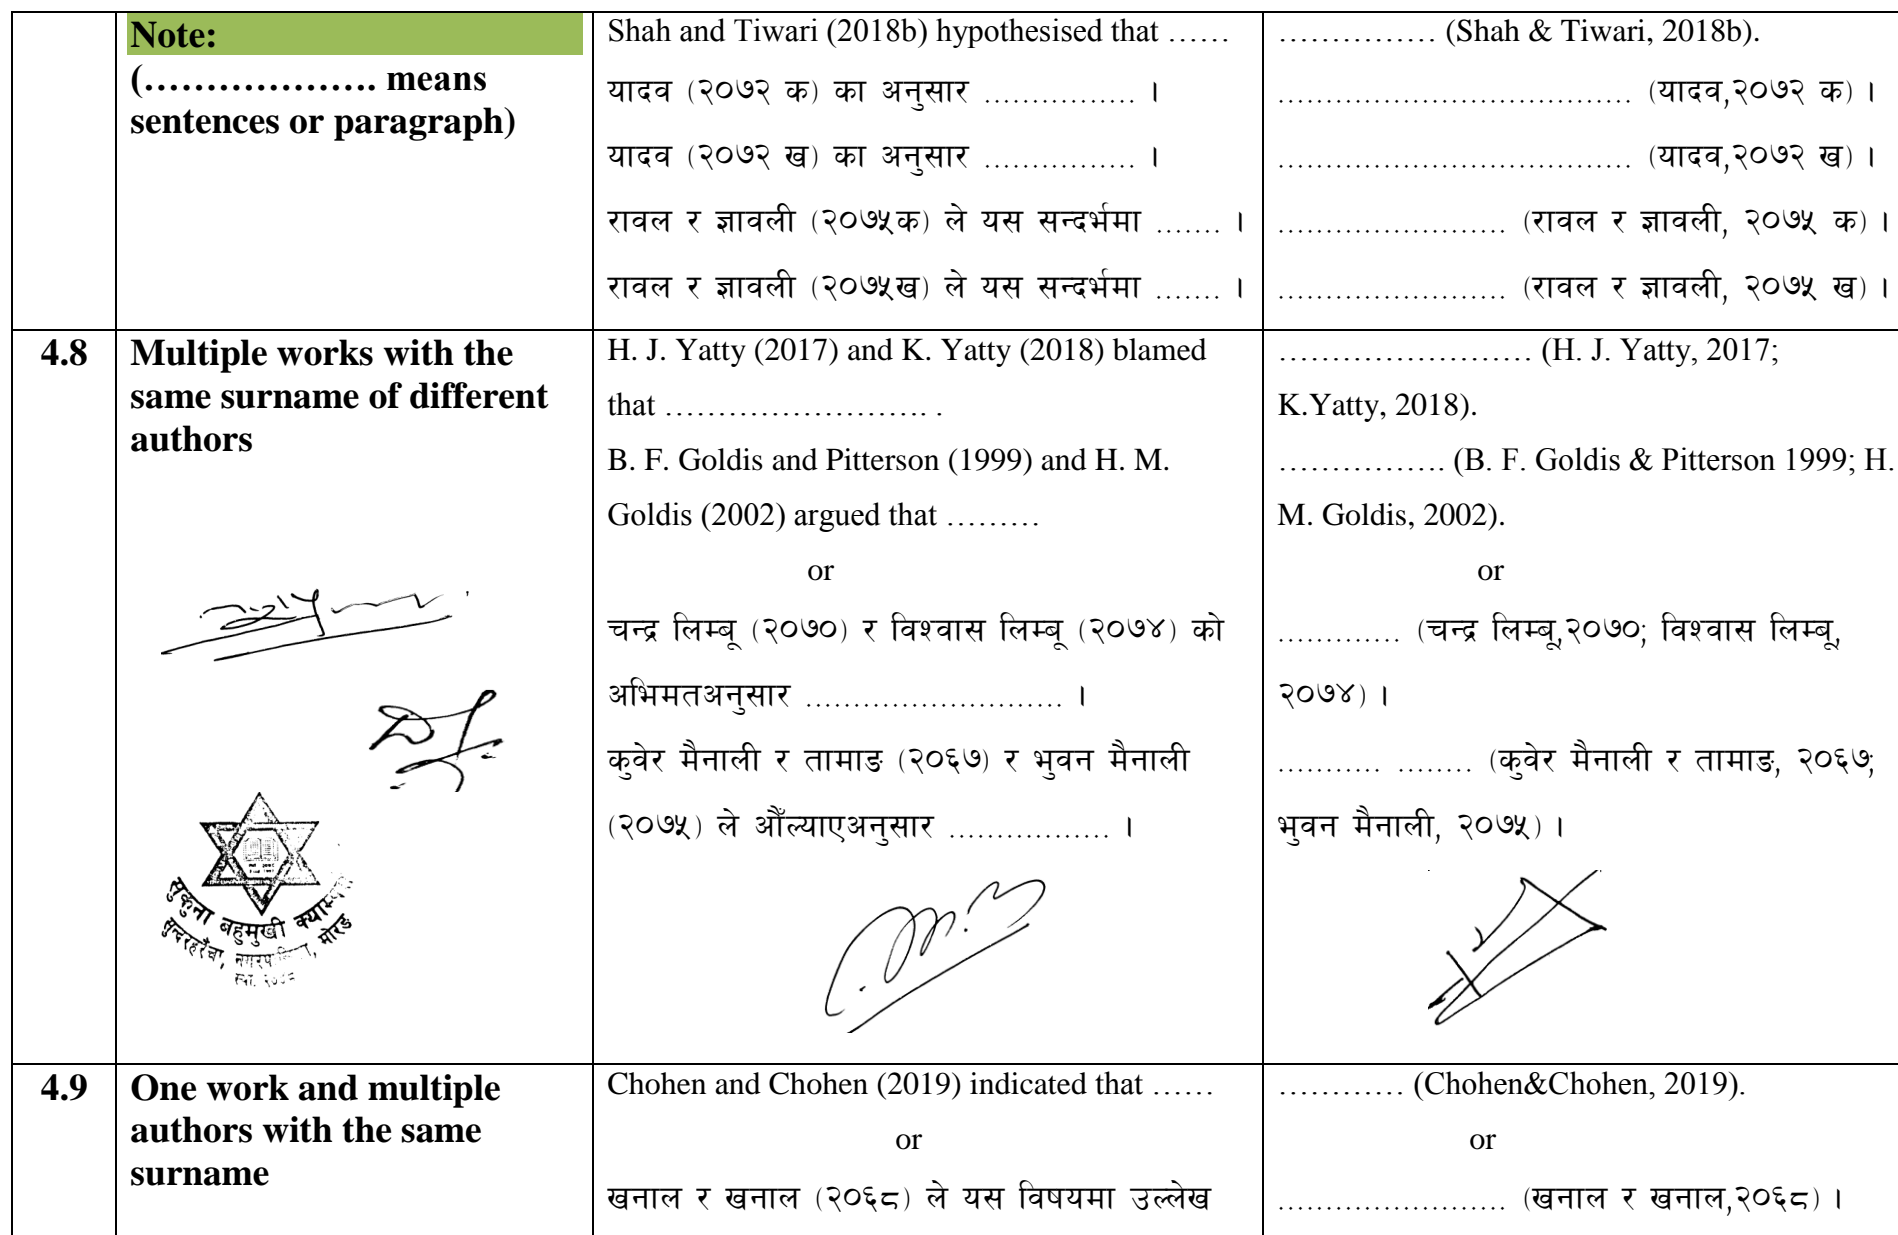 Note:
(………………… means
sentences or paragraph)
Shah and Tiwari (2018b) hypothesised that ……
यादव (२०७२ क) का अनुसार ................ ।
यादव (२०७२ ख) का अनुसार ................ ।
रावल र ज्ञावली (२०७५क) ले यस सन्दर्भमा ....... ।
रावल र ज्ञावली (२०७५ख) ले यस सन्दर्भमा ....... ।
…………… (Shah & Tiwari, 2018b).
..................................... (यादव,२०७२ क) ।
..................................... (यादव,२०७२ ख) ।
........................ (रावल र ज्ञावली, २०७५ क) ।
........................ (रावल र ज्ञावली, २०७५ ख) ।
4.8
Multiple works with the
same surname of different
authors
H. J. Yatty (2017) and K. Yatty (2018) blamed
that ……………………. .
B. F. Goldis and Pitterson (1999) and H. M.
Goldis (2002) argued that ………
or
चन्द्र लिम्बू (२०७०) र विश्वास लिम्बू (२०७४) को
अभिमतअनुसार ........................... ।
कुवेर मैनाली र तामाङ (२०६७) र भुवन मैनाली
(२०७५) ले औँल्याएअनुसार ................. ।
…………………… (H. J. Yatty, 2017;
K.Yatty, 2018).
……………. (B. F. Goldis & Pitterson 1999; H.
M. Goldis, 2002).
or
............. (चन्द्र लिम्बू,२०७०; विश्वास लिम्बू,
२०७४) ।
........... ........ (कुवेर मैनाली र तामाङ, २०६७;
भुवन मैनाली, २०७५) ।
सुकुना बहुमुखी क्याम्पस
सुन्दरहरैंचा, मोरङ
4.9
One work and multiple
authors with the same
surname
Chohen and Chohen (2019) indicated that ……
or
खनाल र खनाल (२०६८) ले यस विषयमा उल्लेख
………… (Chohen&Chohen, 2019).
or
........................ (खनाल र खनाल,२०६८) ।